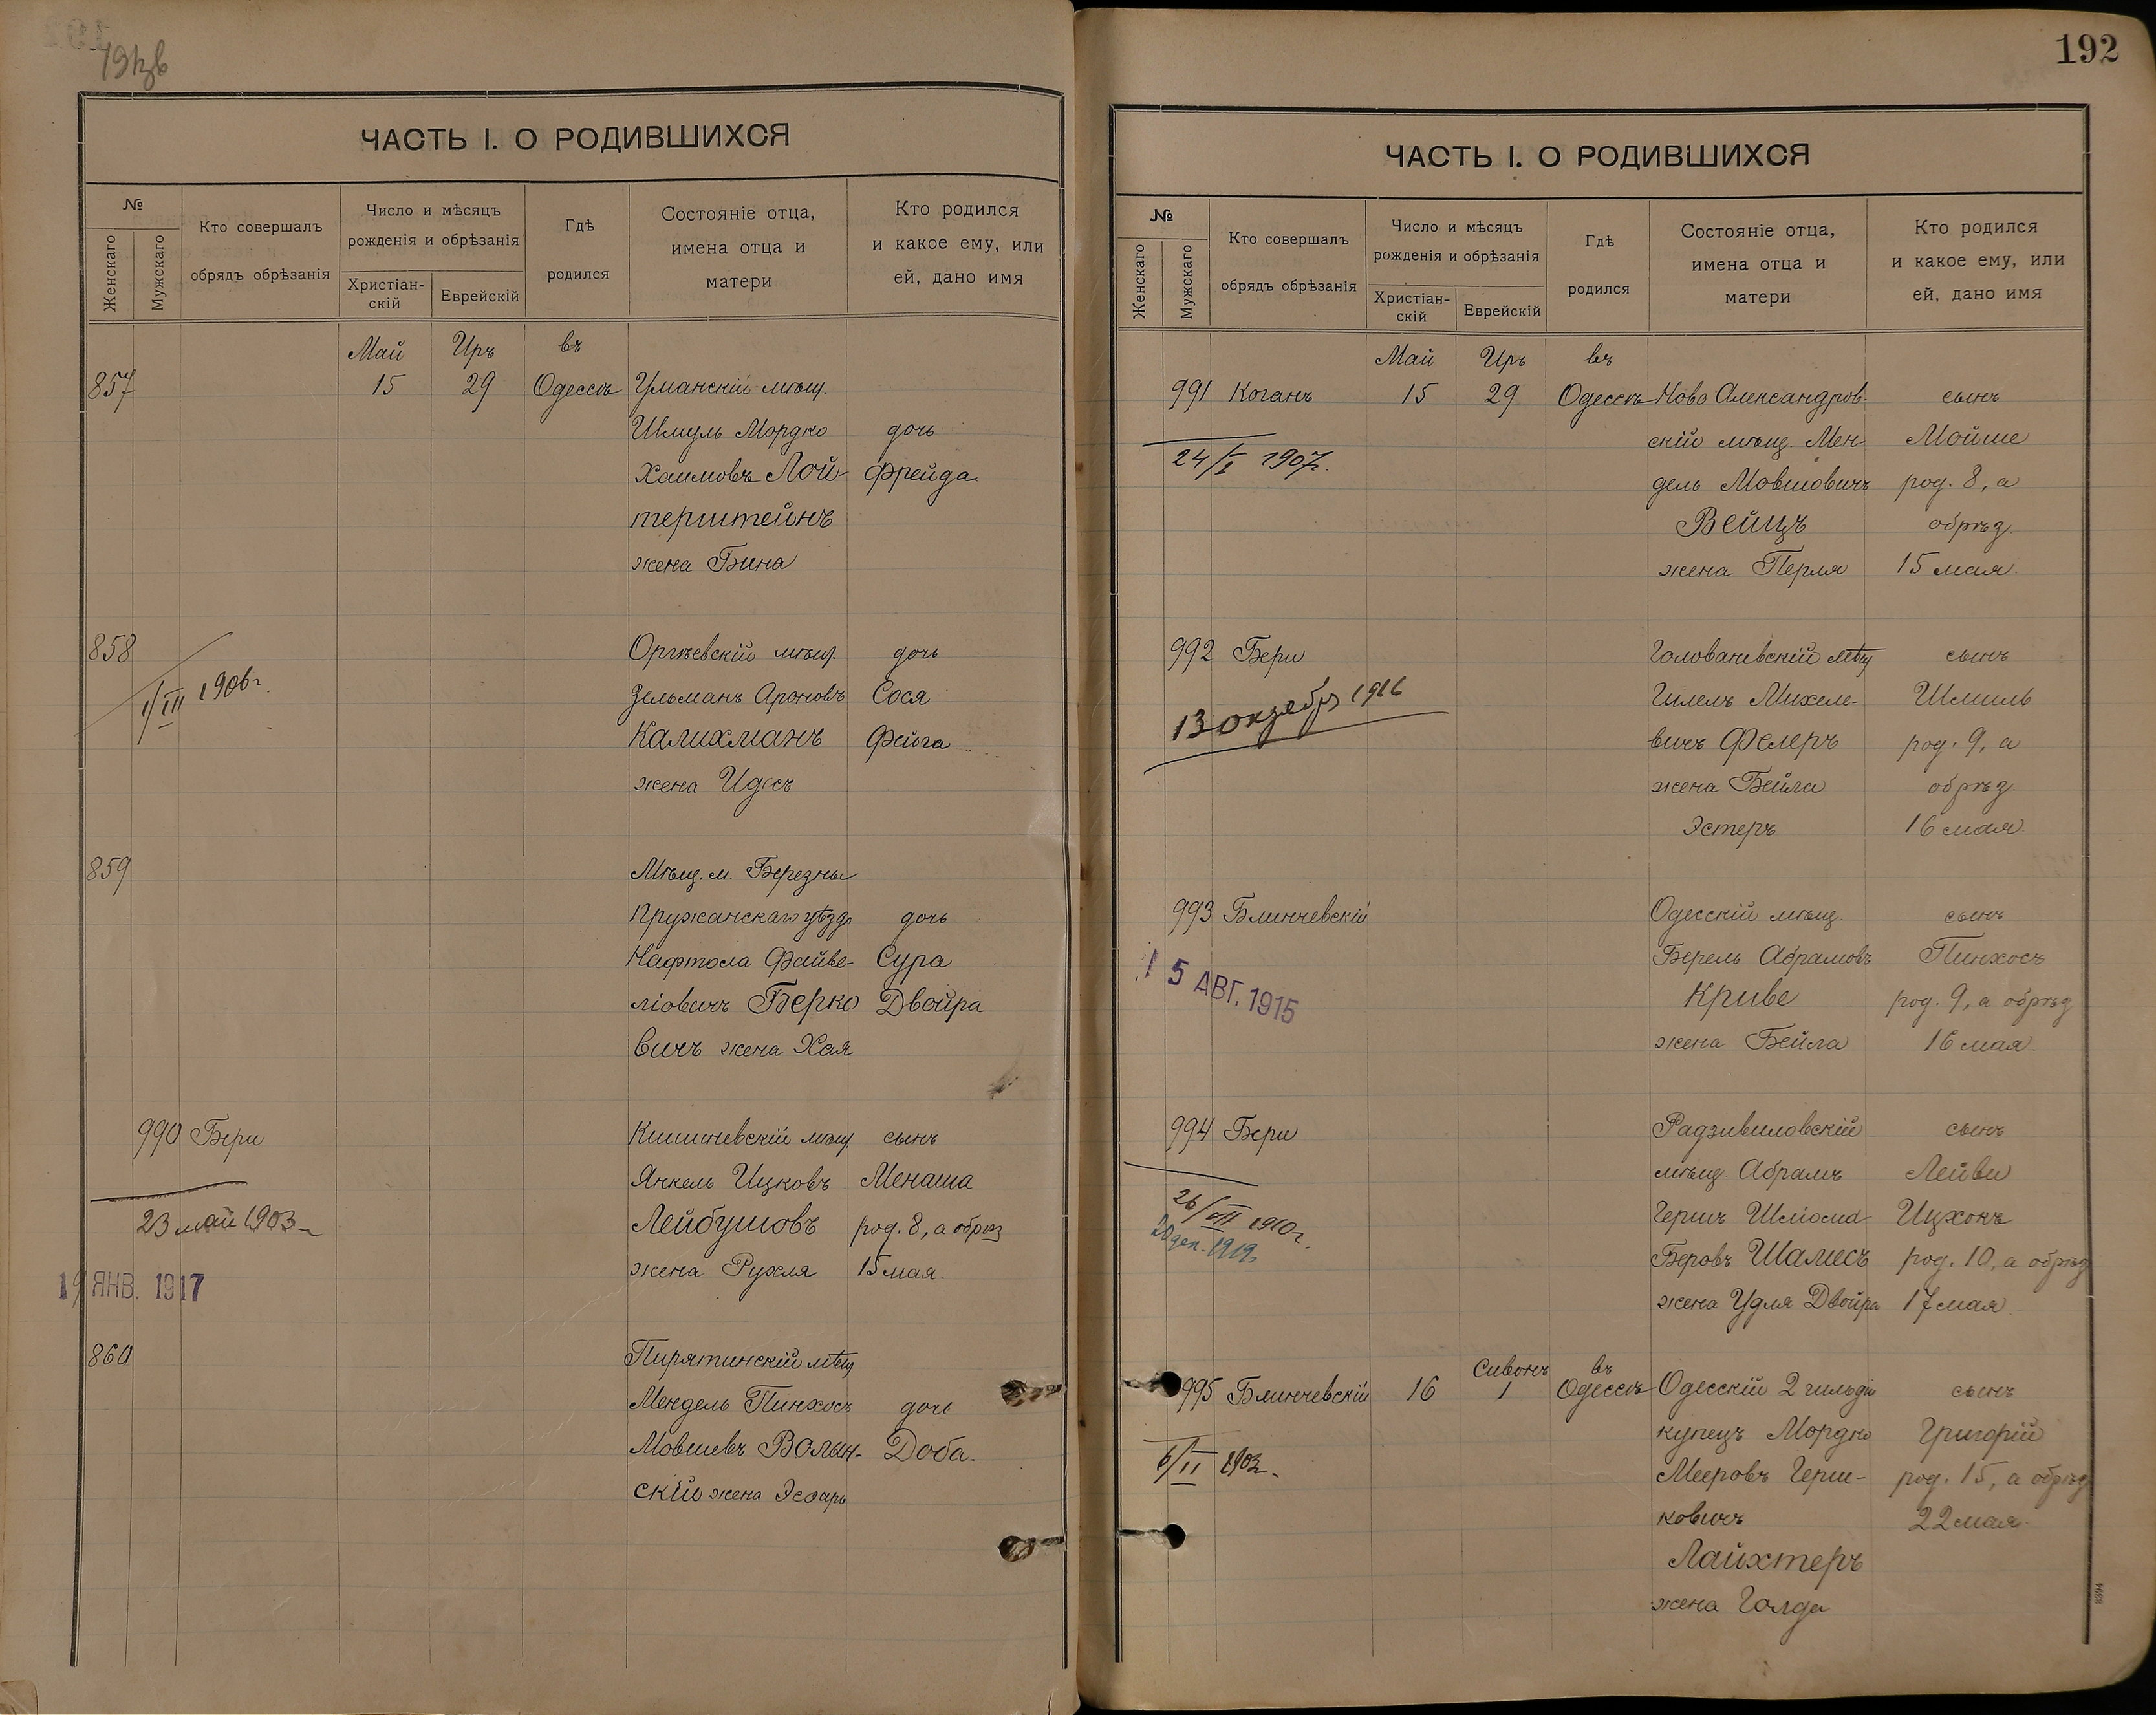 192
ЧАСТЬ I. О РОДИВШИХСЯ
№
Женскаго
Мужскаго
Кто совершалъ
обрядъ обрѣзанія
Число и мѣсяцъ
рожденія и обрѣзанія
Христіан-
скій
Еврейскій
Гдѣ
родился
Состояніе отца,
имена отца и
матери
Кто родился
и какое ему, или
ей, дано имя
Май Иръ въ
857 15 29 Одессѣ Уманскій мѣщ.
Шмуль Мордко дочь
Хаимовъ Лой- Фрейда
терштейнъ
жена Бина
858 Оргѣевскій мѣщ. дочь
1/III 1906 г. Зельманъ Ароновъ Сося
Калихманъ Фейга
жена Идесъ
859 Мѣщ. м. Березны
Пружанскаго уѣзда дочь
Нафтола Файве- Сура
ліовичъ Берко Двойра
вичъ жена Хая
990 Бери Кишиневскій мѣщ. сынъ
Янкель Ицковъ Менаша
23 май 1903 Лейбушовъ род. 8, а обрѣз
жена Рухля 15 мая.
19 ЯНВ. 1917
860 Пирятинскій мѣщ
Мендель Пинхосъ дочь
Мовшевъ Волын- Доба.
скій жена Эсфирь
192
ЧАСТЬ I. О РОДИВШИХСЯ
№
Женскаго
Мужскаго
Кто совершалъ
обрядъ обрѣзанія
Число и мѣсяцъ
рожденія и обрѣзанія
Христіан-
скій
Еврейскій
Гдѣ
родился
Состояніе отца,
имена отца и
матери
Кто родился
и какое ему, или
ей, дано имя
Май Иръ въ
991 Коганъ 15 29 Одессѣ Ново Александров- сынъ
скій мѣщ. Мен- Мойше
24/I 1907 г. дель Мовшовичъ род. 8, а
Вейцъ обрѣз.
жена Перля 15 мая.
992 Бери Голованевскій мѣщ сынъ
13 октября 1916 Гилель Михеле- Шмиль
вичъ Фелеръ род. 9, а
жена Бейла обрѣз.
Эстеръ 16 мая
993 Блинчевскій Одесскій мѣщ. сынъ
15 АВГ. 1915 Берель Абрамовъ Пинхосъ
Криве род. 9, а обрѣз
жена Бейла 16 мая.
994 Бери Радзивиловскій сынъ
мѣщ. Абрамъ Лейви
26/VII 1910 г. Гершъ Шліома Ицхокъ
20 дек. 1919 Беровъ Шалисъ род. 10, а обрѣз
жена Удля Двойра 17 мая
Сивонъ въ
995 Блинчевскій 16 1 Одессѣ Одесскій 2 гильдіи сынъ
купецъ Мордко Григорій
6/II 1903 г. Мееровъ Герш- род. 15, а обрѣз
ковичъ 22 мая
Лайхтеръ
жена Голда